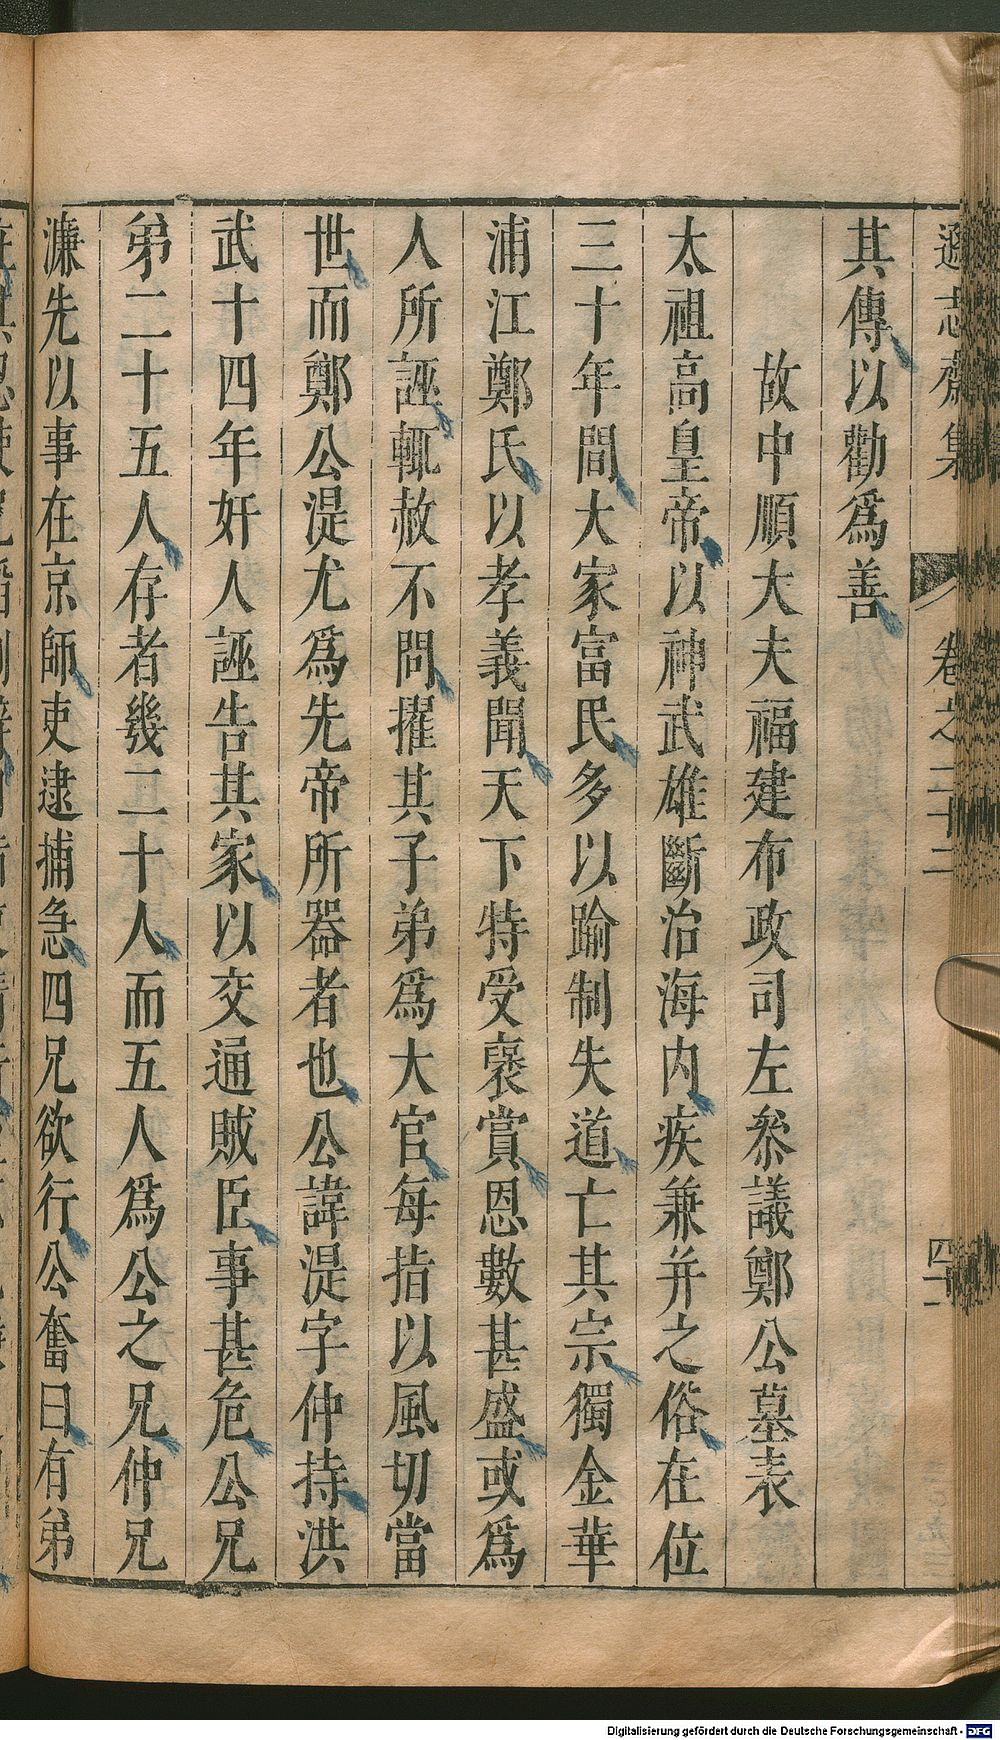 遜志齋集 卷之二十二 四十一
其傳以勸爲善
故中順大夫福建布政司左叅議鄭公墓表
太祖高皇帝以神武雄斷治海內疾兼并之俗在位
三十年間大家富民多以踰制失道亡其宗獨金華
浦江鄭氏以孝義聞天下特受褒賞恩數甚盛或爲
人所誣輒赦不問擢其子弟爲大官每指以風切當
世而鄭公湜尤爲先帝所器者也公諱湜字仲持洪
武十四年奸人誣告其家以交通賊臣事甚危公兄
弟二十五人存者幾二十人而五人爲公之兄仲兄
濂先以事在京師吏逮捕急四兄欲行公奮曰有弟
Digitalisierung gefördert durch die Deutsche Forschungsgemeinschaft - DFG